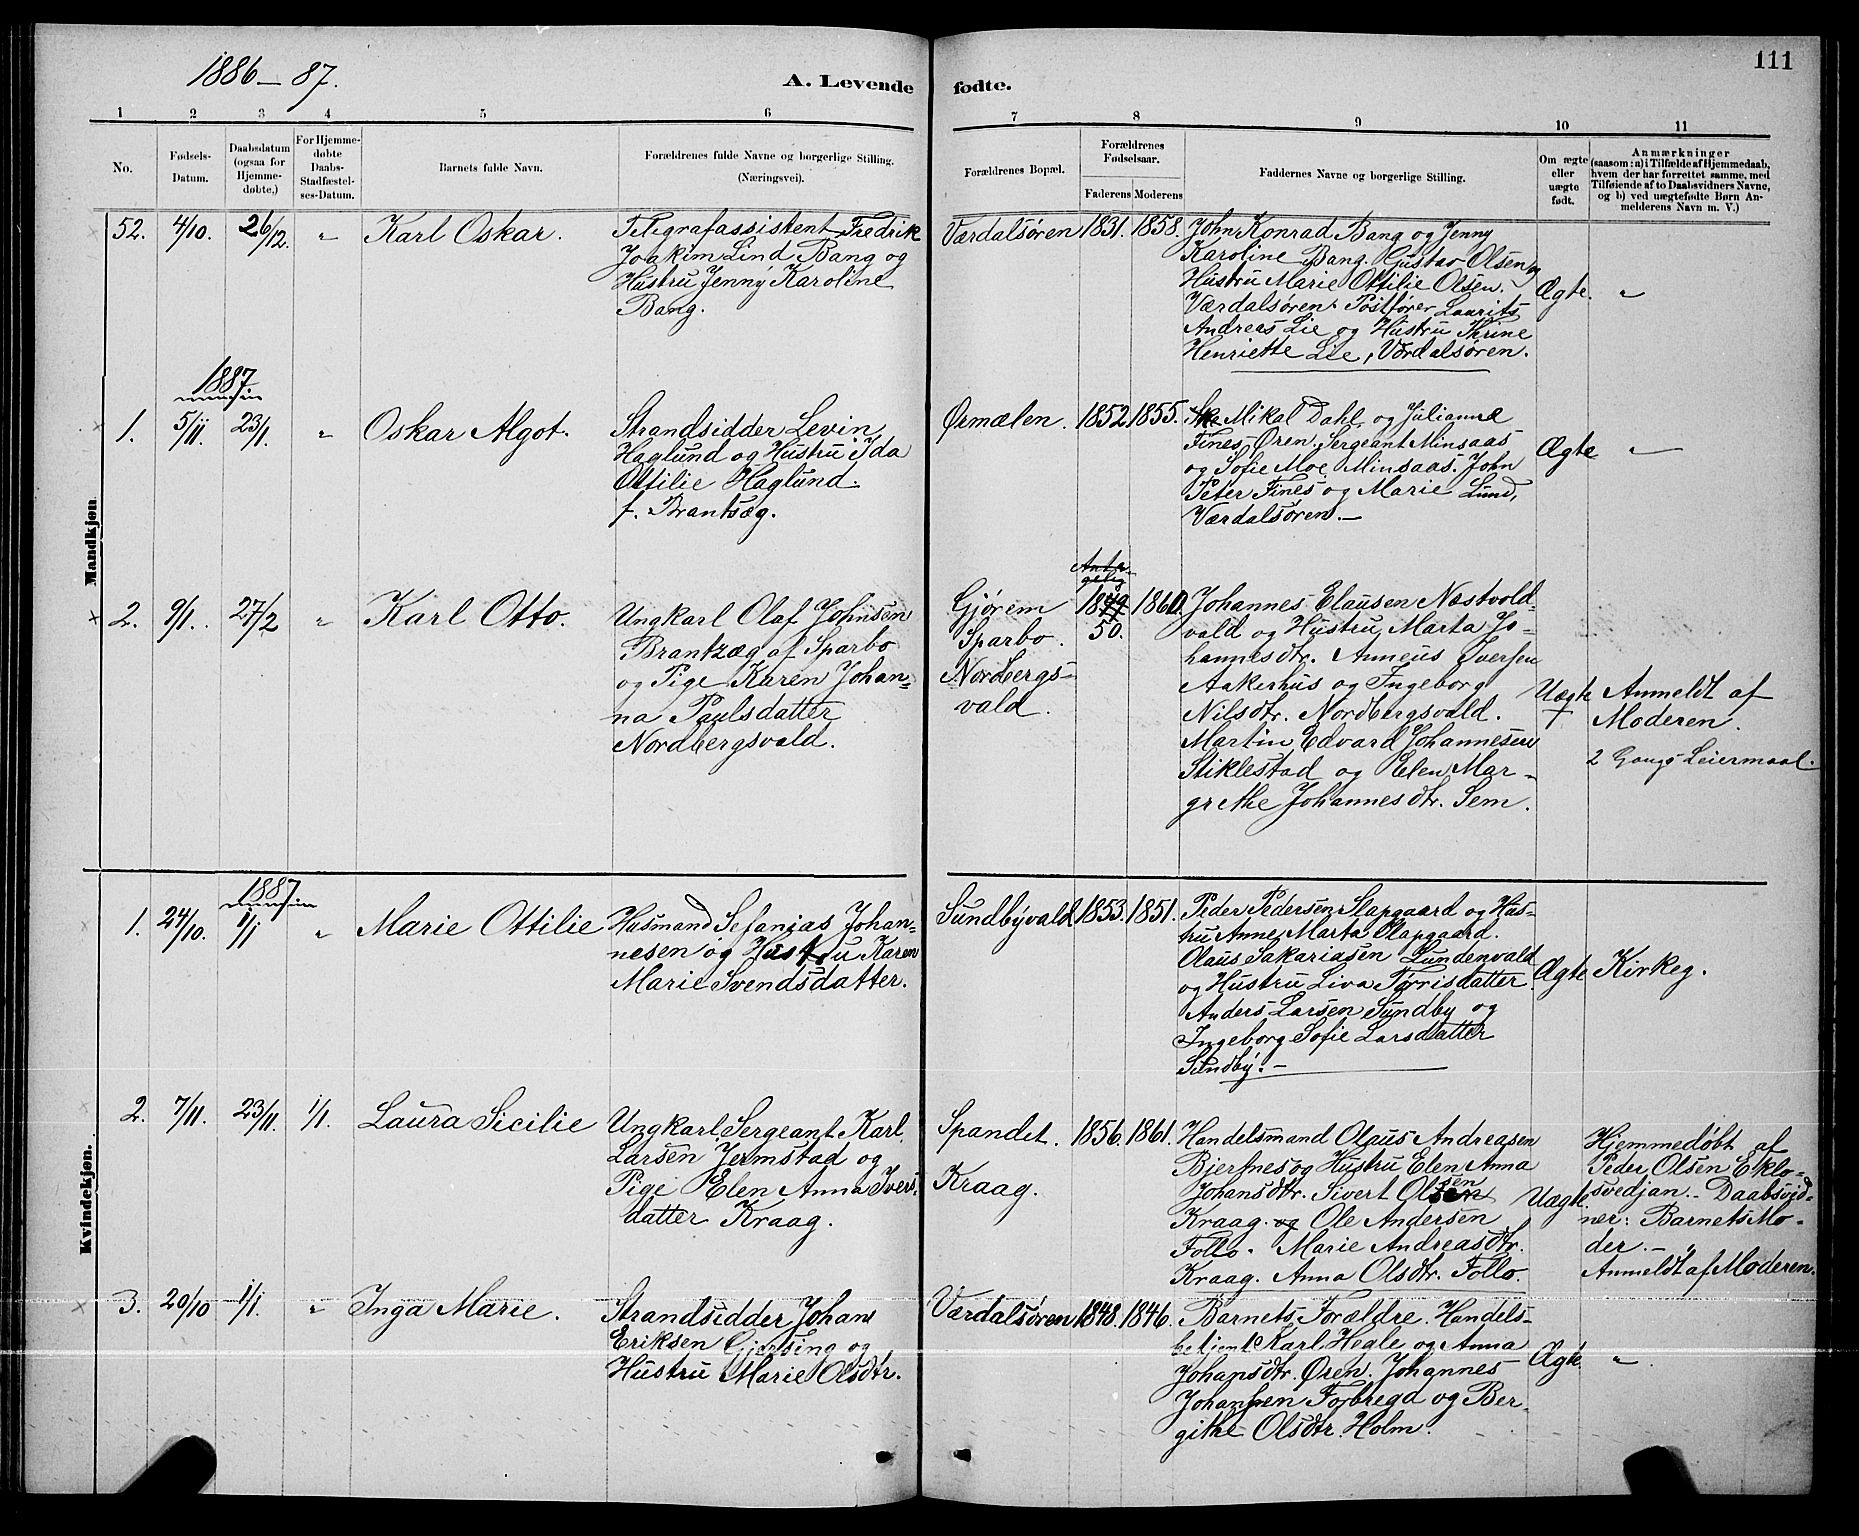 1886-87.
A. Levende fødte.
111
1 2 3 4 5 6 7 8 9 10 11
No.
Fødsels-
Datum.
Daabsdatum
(ogsaa for
Hjemme-
døbte,)
For Hjemme-
døbte
Daabs-
Stadfæstel-
ses-Datum.
Barnets fulde Navn.
Forældrenes fulde Navne og borgerlige Stilling.
(Næringsvei).
Forældrenes Bopæl.
Forældrenes
Fødselsaar.
Faderens Moderens
Faddernes Navne og borgerlige Stilling.
Om ægte
eller
uægte
født.
Anmærkninger
(saasom: a) i Tilfælde af Hjemmedaab,
hvem der har forrettet samme, med
Tilføiende af to Daabsvidners Navne,
og b) ved uægtefødte Børn An-
melderens Navn m. V.)
Mandkjøn
52. 4/10. 26/12. " Karl Oskar.
Telegrafassistent Fredrik
Joakim Lind Bang og
Hustru Jenny Karoline
Bang.
Værdalsøren 1831. 1858.
John Konrad Bang og Jenny
Karoline Bang. Gustav Olsen og
Hustru Marie Ottilie Olsen.
Værdalsøren. Postfører Laurits
Andreas Lie og Hustru Thrine
Henriette Lie, Værdalsøren.
Ægte. "
1887
1. 5/11. 23/1. " Oskar Algot.
Strandsidder Levin
Haglund og Hustru Ida
Ottilie Haglund.
f. Brantsæg.
Ørmælen. 1852 1855.
Mikal Dahl og Julianne
Fines, Øren. Sergeant Minsaas
og Sofie Moe Minsaas. John
Peter Fines og Marie Lund,
Værdalsøren.-
Ægte "
x 2. 9/1. 27/2 " Karl Otto.
Ungkarl Olaf Johnsen
Brantzæg af Sparbo
og Pige Karen Johan-
na Paulsdatter
Nordbergsvald.
Gjørem
Sparbo.
Nordbergs-
vald.
Anta-
gelig
1849
50.
1860.
Johannes Elausen Næstvold-
vald og Hustru Marta Jo-
hannesdtr. Anneus Iversen
Aakerhus og Ingeborg
Nilsdtr. Nordbergsvald.
Martin Edvard Johannesen
Stiklestad og Elen Mar-
grethe Johannesdtr. Sem.
Uægte
Anmeldt af
Moderen.
2 Gangs Leiermaal.
Kvindekjøn.
1887
1. 24/10. 1/1 " Marie Ottilie
Husmand Sefanias Johan-
nesen og Hustru Karen
Marie Svendsdatter.
Sundbyvald 1853. 1851.
Peder Pedersen Slapgaard og Hus-
tru Anne Marta Slapgaard.
Olaus Sakariasen Lundenvald
og Hustru Liva Torrisdatter
Anders Larsen Sundby og
Ingeborg Sofie Larsdatter
Sundby.-
Ægte Kirkeg.
2. 7/11. 23/11. 1/1. Laura Sicilie
Ungkarl Sergeant Karl
Larsen Jermstad og
Pige Elen Anna Ivers-
datter Kraag.
Spandet.
Kraag.
1856. 1861.
Handelsmand Olaus Andreasen
Bjertnes og Hustru Elen Anna
Johansdtr. Sivert Olsen
Kraag. og Ole Andersen
Follo. Marie Andreasdtr.
Kraag. Anna Olsdtr. Follo.
Uægte
Hjemmedøbt af
Peder Olsen Eklo-
svedjan.- Daabsvid-
ner: Barnets Mo-
der.-
Anmeldt af Moderen.
x 3. 20/10 1/1. " Inga Marie.
Strandsidder Johan
Eriksen Gjersing og
Hustru Marie Olsdtr.
Værdalsøren 1848. 1846.
Barnets Forældre. Handels-
betjent Karl Hegle og Anna
Johansdtr. Øren. Johannes
Johansen Forbregd og Ber-
githe Olsdtr. Holm.
Ægte "